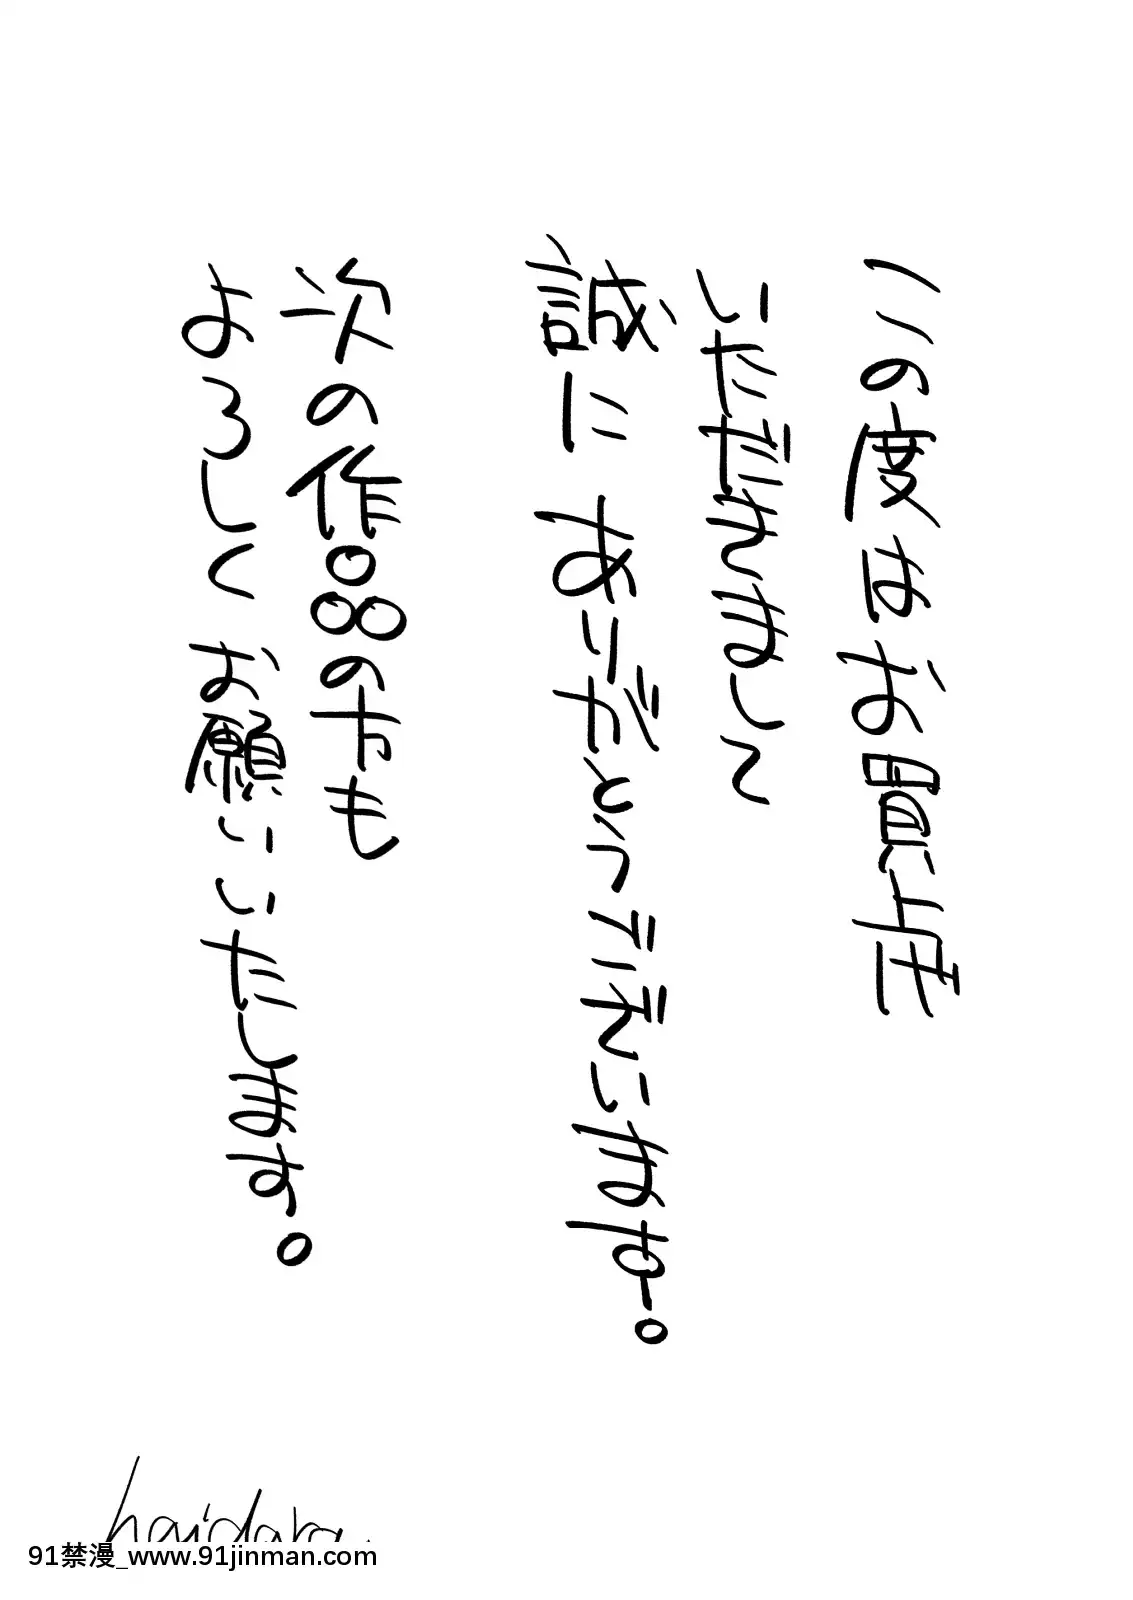 この度はお買上げ
いただきまして
誠にありがとうございます。
次の作品の方も
よろしくお願いいたします。
haidara
91禁漫_www.91jinman.com